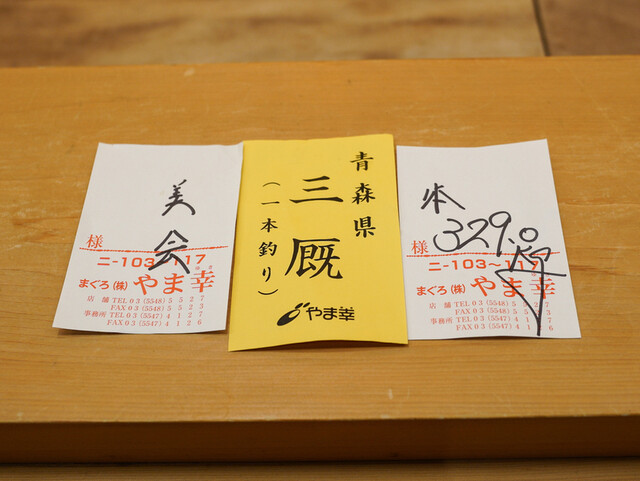 美
会
様
ニ-103〜117
まぐろ(株)やま幸
店舗 TEL 03 (5548) 5527
FAX 03 (5548) 5523
事務所 TEL 03 (5547) 4127
FAX 03 (5547) 4126
青森県
三厩
(一本釣り)
やま幸
本
329.0
様
ニ-103〜117
まぐろ(株)やま幸
店舗 TEL 03 (5548) 5527
FAX 03 (5548) 5523
事務所 TEL 03 (5547) 4127
FAX 03 (5547) 4126